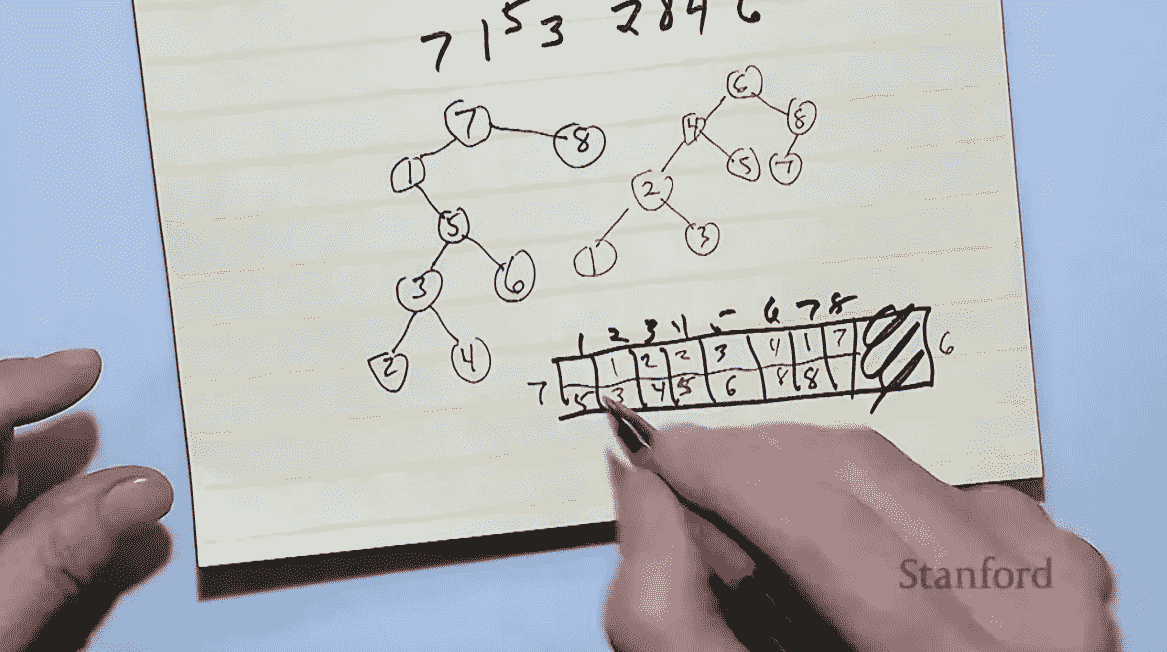 7 1 5 3 2 8 4 6
7
8
1
5
3
6
2
4
6
4
8
5
7
2
1
3
1 2 3 4 5 6 7 8
1 2 2 3 4 1 7
7 6
5 3 4 5 6 8 8
Stanford